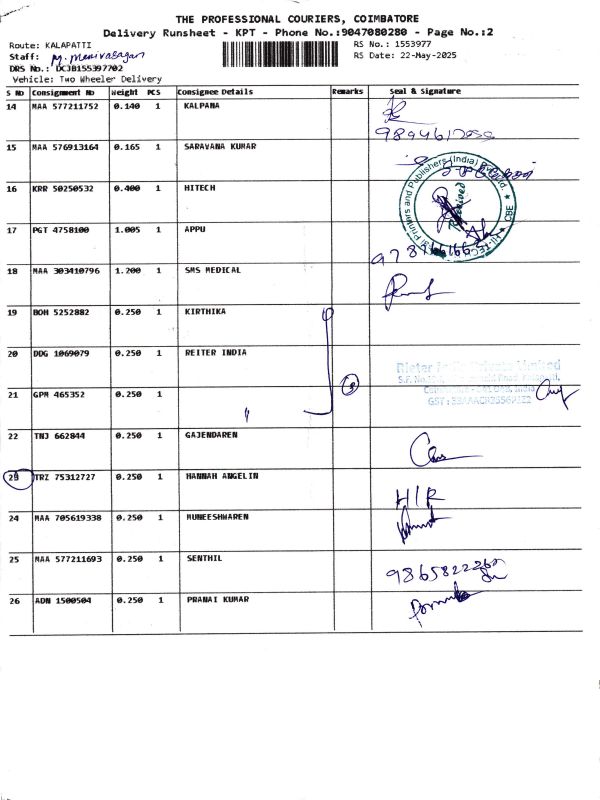 THE PROFESSIONAL COURIERS, COIMBATORE
Delivery Runsheet - KPT - Phone No.:9047080280 - Page No.:2
Route: KALAPATTI
RS No.: 1553977
Staff: M. Manivasagan
RS Date: 22-May-2025
DRS No.: DCJB155397702
Vehicle: Two Wheeler Delivery
S No Consignment No Weight PCS Consignee Details Remarks Seal & Signature
14 MAA 577211752 0.140 1 KALPANA
15 MAA 576913164 0.165 1 SARAVANA KUMAR
16 KRR 50250532 0.400 1 HITECH
Received
CBE
17 PGT 4758100 1.005 1 APPU
18 MAA 303410796 1.200 1 SMS MEDICAL
19 BOM 5252882 0.250 1 KIRTHIKA
20 DDG 1069079 0.250 1 REITER INDIA
Rieter India Private Limited
21 GPM 465352 0.250 1
22 TNJ 662844 0.250 1 GAJENDAREN
23 TRZ 75312727 0.250 1 HANNAH ANGELIN
H/R
24 MAA 705619338 0.250 1 MUNEESHWAREN
25 MAA 577211693 0.250 1 SENTHIL
26 ADN 1500504 0.250 1 PRANAI KUMAR